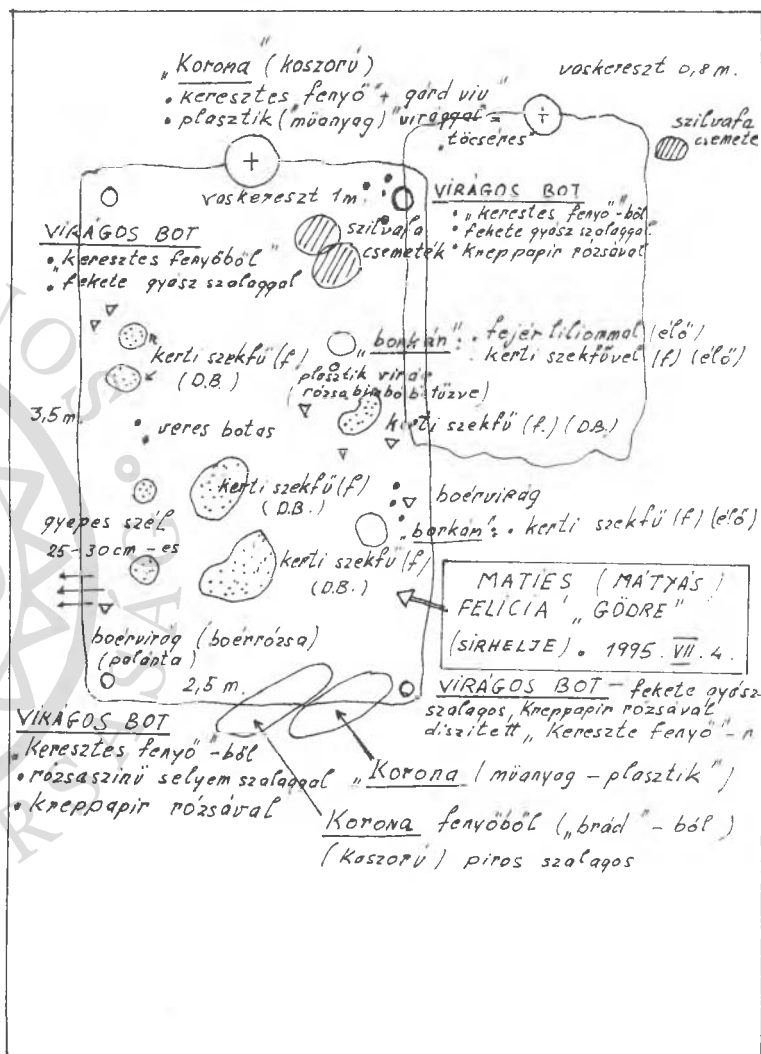 „Korona" (koszorú)
• keresztes fenyő" + gárd viu"
• plasztik („műanyag) "virággal" =
„töcséres"
vaskereszt 0,8 m.
szilvafa
csemete
vaskereszt 1 m.
VIRÁGOS BOT
• „keresztes fenyőből"
• fekete gyász szalaggal
szilvafa
csemeték
VIRÁGOS BOT
• „kerestes fenyő"-ből
• fekete gyász szalaggal
• kreppapir rózsával
kerti szekfű (f)
(D.B.)
„borkán": • fejér liliommal (élő)
kerti szekfűvel (f) (élő)
plasztik virág
(rózsabimbó bitűzve)
3,5 m.
veres botas
kerti szekfű (f.) (D.B.)
kerti szekfű (f)
(D.B.)
boérvirág
gyepes szél
25-30 cm-es
„borkán": • kerti szekfű (f) (élő)
kerti szekfű (f)
(D.B.)
MATIES (MÁTYÁS)
FELÍCIA „GÖDRE"
(SIRHELJE) • 1995. VII. 4.
boérvirág (boérrózsa)
(palánta)
2,5 m.
VIRÁGOS BOT – fekete gyász
szalagos, kreppapir rózsával
diszitett „Kereszte fenyő"-
VIRÁGOS BOT
„keresztes fenyő"-ből
• rózsaszinű selyem szalaggal
• kreppapir rózsával
„Korona (műanyag – plasztik")
Korona fenyőből („brád"-ból)
(Koszorú) piros szalagos